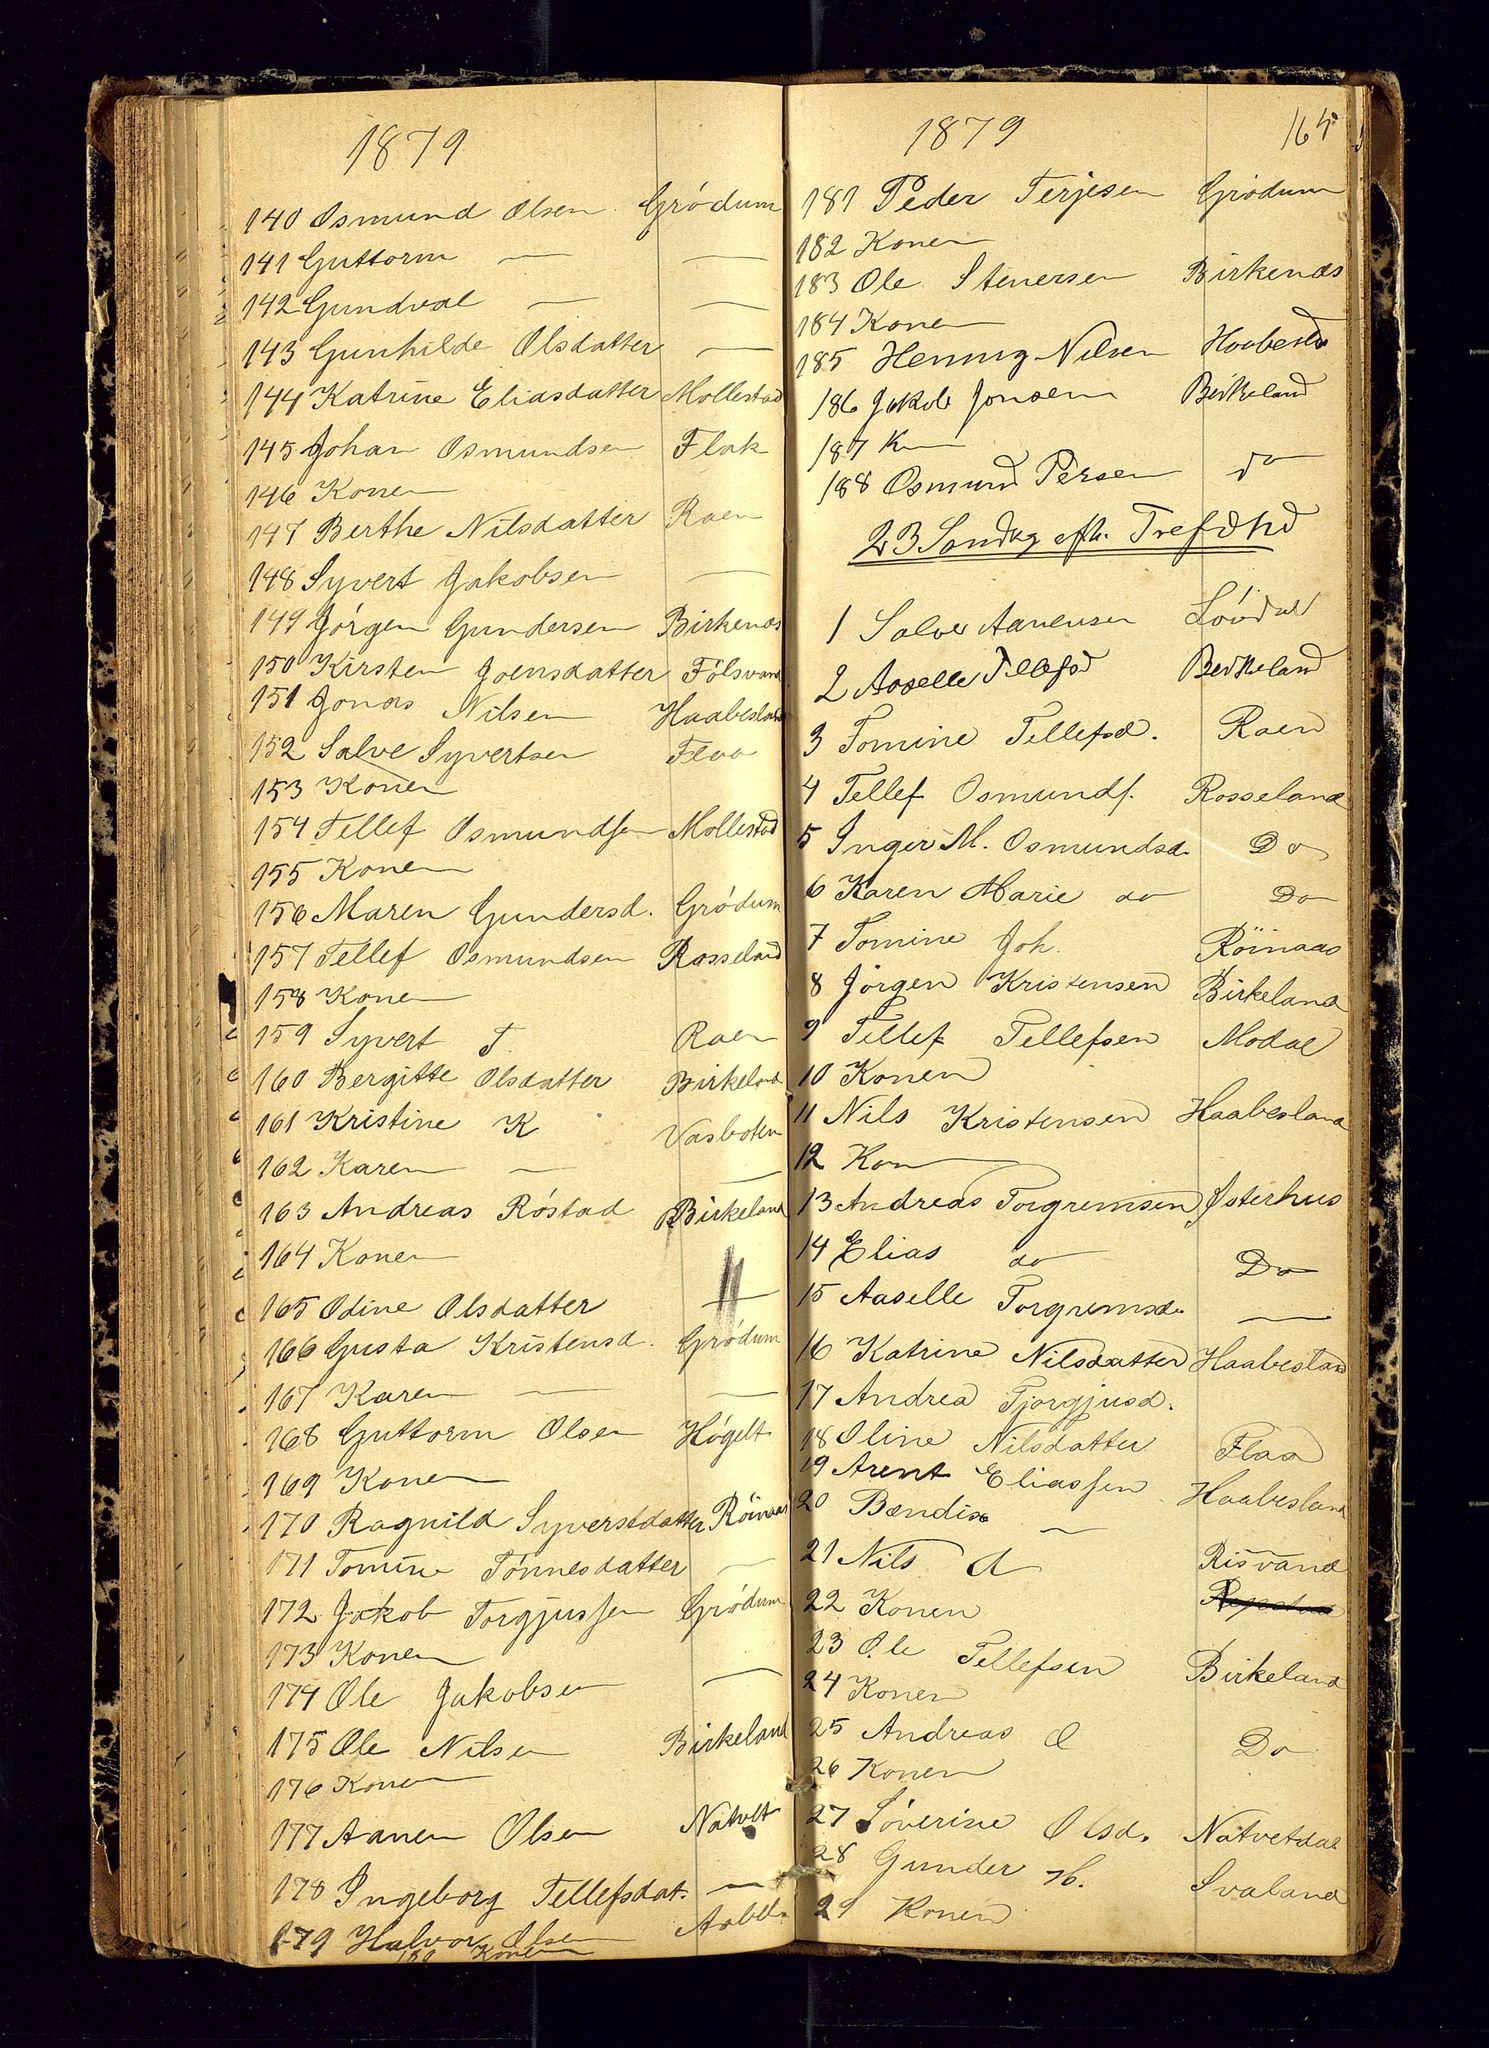 1879
140 Osmund Olsen Gródum
141 Guttorm — —
142 Gundval — —
143 Gunhilde Olsdatter —
144 Katrine Eliasdatter Mollestad
145 Johan Osmundsen Flak
146 Konen
147 Berthe Nilsdatter Raen
148 Syvert Jakobsen —
149 Jórgen Gundersen Birkenæs
150 Kirsten Joensdatter Fólsvand
151 Jonas Nilsen Haabesland
152 Salve Syvertsen Flaa
153 Konen
154 Tellef Osmundsen Mollestad
155 Konen
156 Maren Gundersd. Gródum
157 Tellef Osmundsen Rosseland
158 Konen
159 Syvert T. Raen
160 Bergitte Olsdatter Birkeland
161 Kristine K Vasboten
162 Karen — —
163 Andreas Róstad Birkeland
164 Konen
165 Odine Olsdatter —
166 Gusta Kristensd. Gródum
167 Karen — —
168 Guttorm Olsen Hógelt
169 Konen
170 Ragnild Syverstdatter Róinaas
171 Tomine Tónnesdatter —
172 Jakob Torgjussen Gródum
173 Konen
174 Ole Jakobsen —
175 Ole Nilsen Birkeland
176 Konen
177 Aanen Olsen Natvet
178 Ingeborg Tellefsdat. —
179 Halvor Olsen
180 Konen
1879 164
181 Peder Terjesen Gródum
182 Konen
183 Ole Stenersen Birkenæs
184 Konen
185 Hennig Nilsen Haabesld
186 Jakob Jonsen Birkeland
187 K
188 Osmund Persen do
23 Sondg efth. Trefdhd
1 Salve Aanensen Lóvdal
2 Aaselle Tellefsd Birkeland
3 Tomine Tellefsd. Raen
4 Tellef Osmunds. Rosseland
5 Inger M. Osmundsd. Do
6 Karen Marie do Do
7 Tomine Joh. Róinaas
8 Jörgen Kristensen Birkeland
9 Tellef Tellefsen Modal
10 Konen
11 Nils Kristensen Haabesland
12 Kon
13 Andreas Torgremsen Østerhus
14 Elias do Do
15 Aaselle Torgremsd. —
16 Katrine Nilsdatter Haabesland
17 Andrea Tjorgjusd.
18 Oline Nilsdatter Flaa
19 Arent Eliassen Haabesland
20 Bendix —
21 Nils A Risvand
22 Konen
23 Ole Tellefsen Birkeland
24 Konen
25 Andreas O Do
26 Konen
27 Sóverine Olsd. Natvetdal
28 Gunder H. Svaland
29 Konen